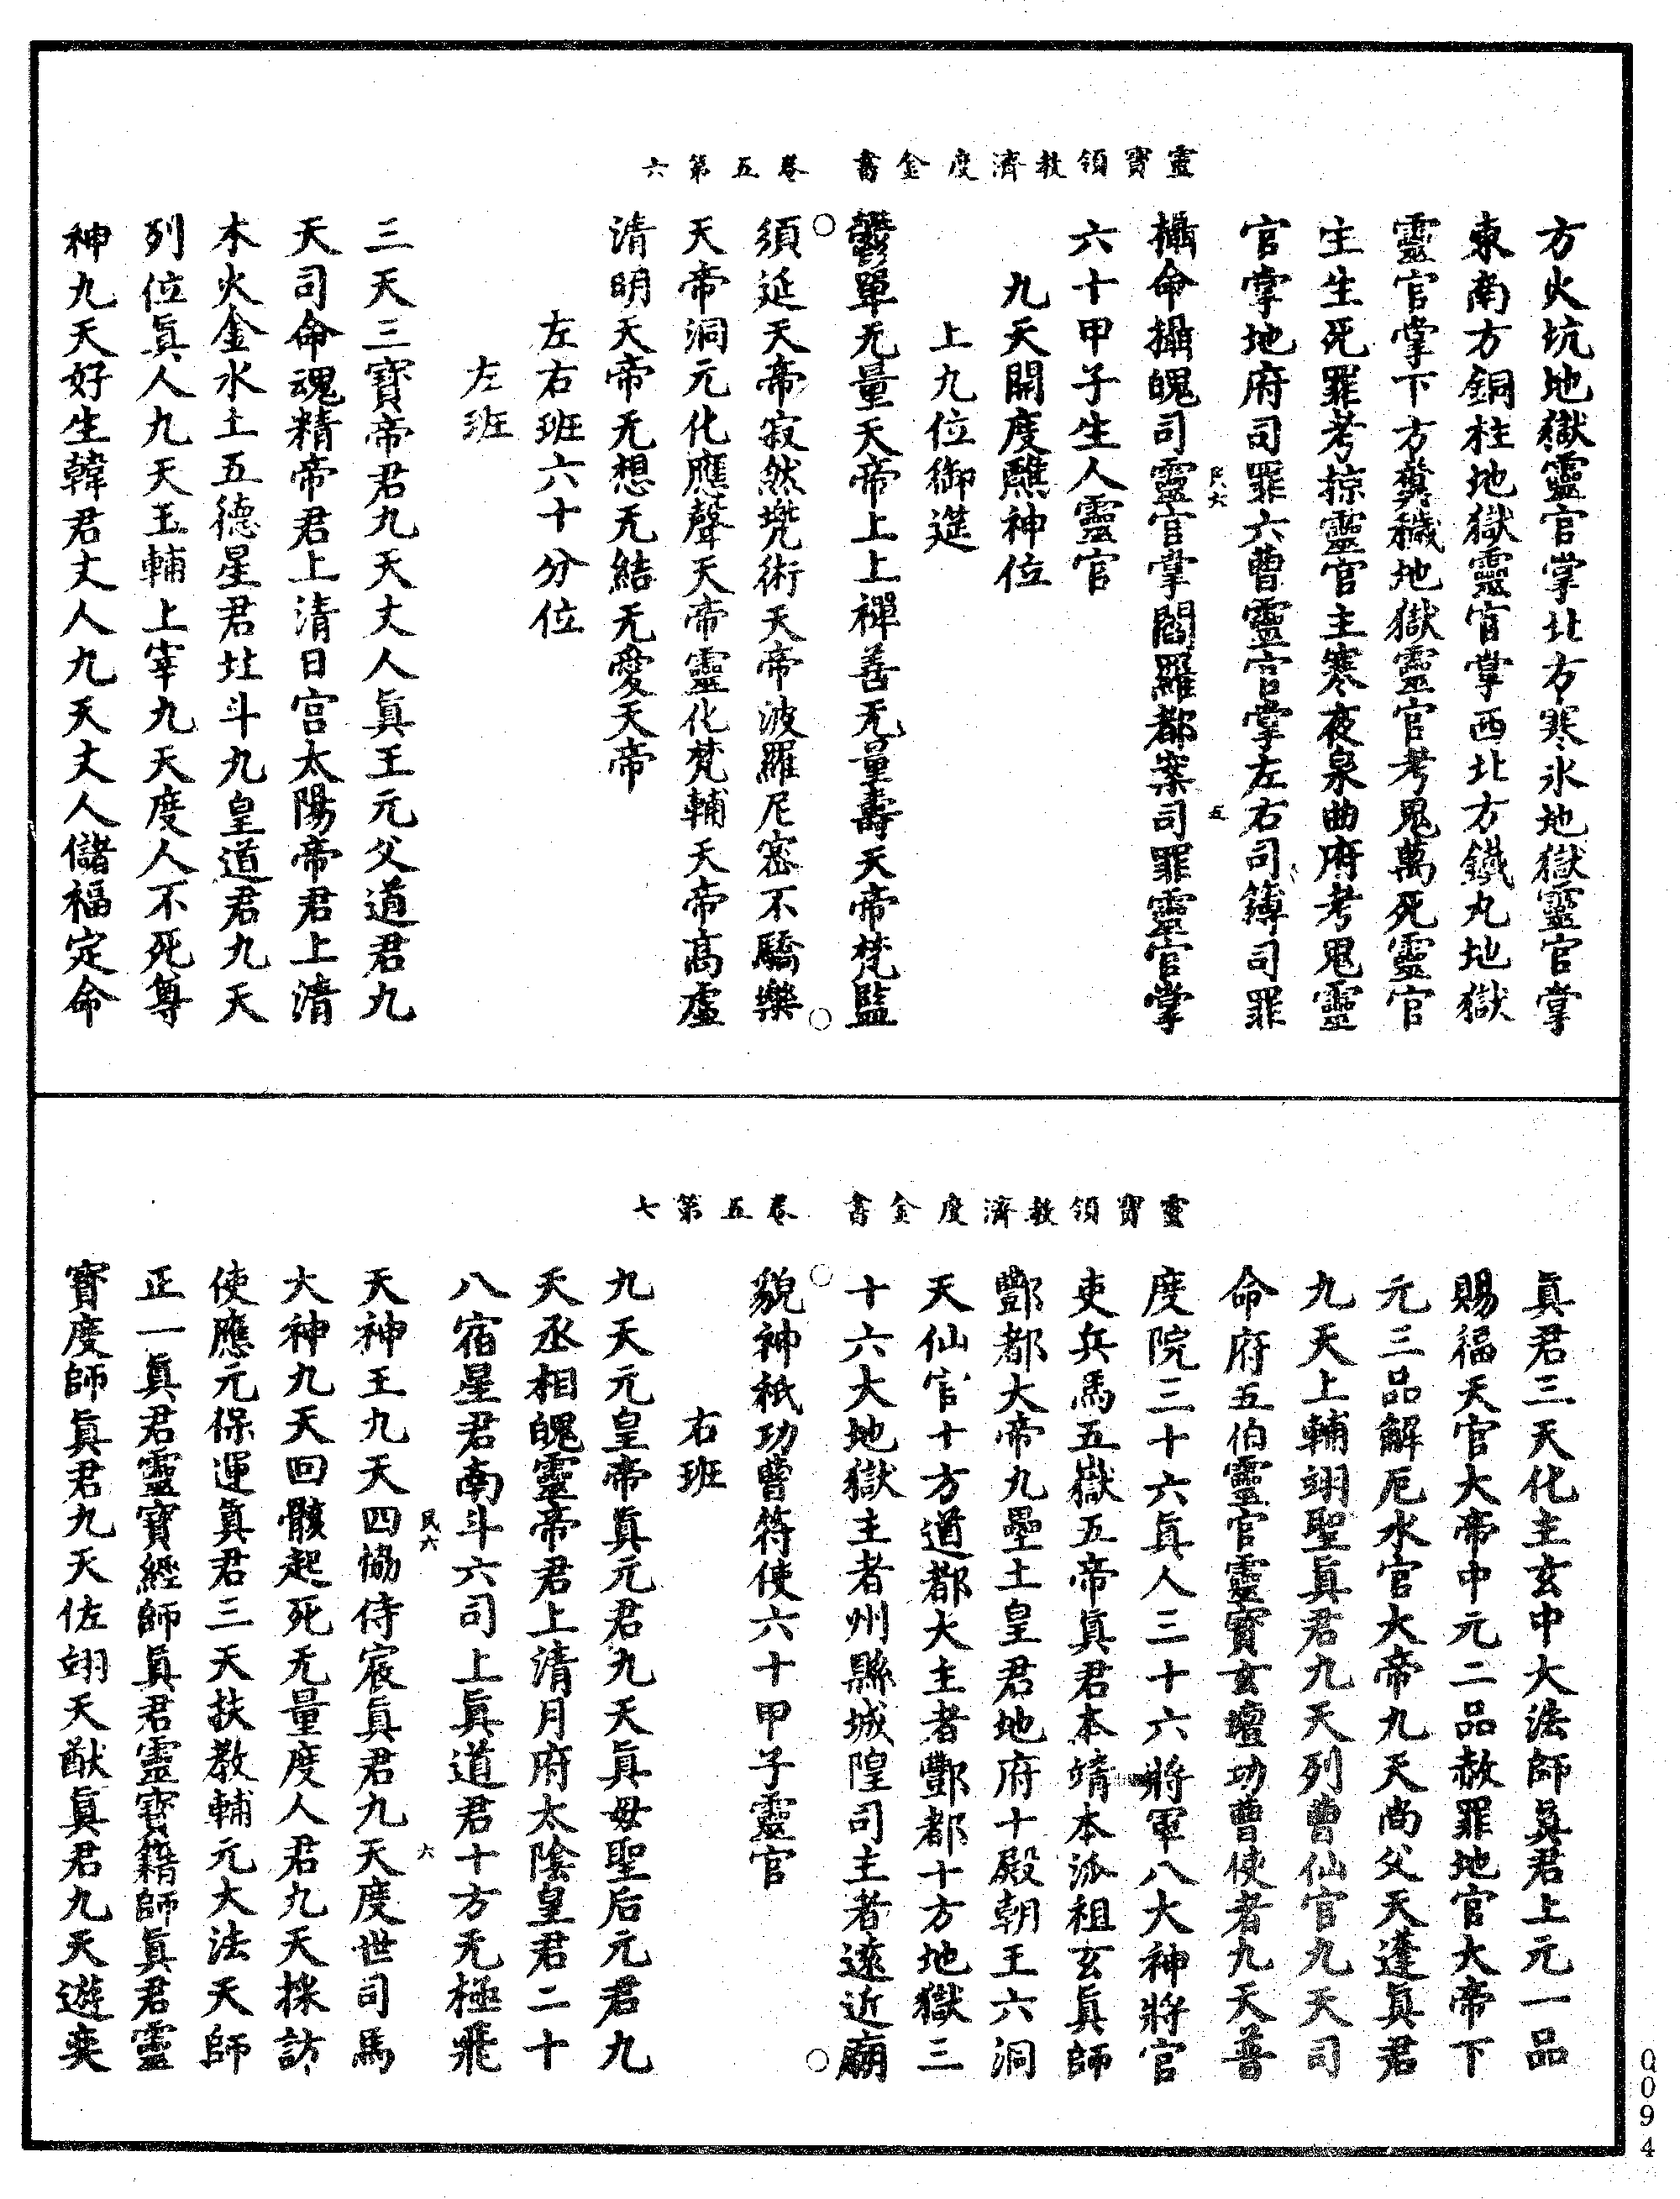 靈寶領教濟度金書　卷五第六
方火坑地獄靈官掌北方寒氷地獄靈官掌
東南方銅柱地獄靈官掌西北方鐵丸地獄
靈官掌下方糞穢地獄靈官考鬼萬死靈官
主生死罪考掠靈官主寒夜泉曲府考鬼靈
官掌地府司罪六曹靈官掌左右司簿司罪
民六　五
攝命攝魄司靈官掌閻羅都案司罪靈官掌
六十甲子生人靈官
九天開度醮神位
上九位御筵
鬱單无量天帝上上禪善无量壽天帝梵監
須延天帝寂然兠術天帝波羅尼密不驕樂
天帝洞元化應聲天帝靈化梵輔天帝高虛
清明天帝无想无結无愛天帝
左右班六十分位
左班
三天三寶帝君九天丈人眞王元父道君九
天司命魂精帝君上清日宫太陽帝君上清
木火金水土五德星君北斗九皇道君九天
列位眞人九天玉輔上宰九天度人不死尊
神九天好生韓君丈人九天丈人儲福定命
靈寶領教濟度金書　卷五第七
眞君三天化主玄中大法師眞君上元一品
賜福天官大帝中元二品赦罪地官大帝下
元三品解厄水官大帝九天尚父天蓬眞君
九天上輔翊聖眞君九天列曹仙官九天司
命府五伯靈官靈寶玄壇功曹使者九天普
度院三十六眞人三十六將軍八大神將官
吏兵馬五嶽五帝眞君本靖本派祖玄眞師
酆都大帝九壘土皇君地府十殿朝王六洞
天仙官十方道都大主者酆都十方地獄三
十六大地獄主者州縣城隍司主者遠近廟
貌神祇功曹符使六十甲子靈官
右班
九天元皇帝眞元君九天眞母聖后元君九
天丞相魄靈帝君上清月府太陰皇君二十
八宿星君南斗六司上眞道君十方无極飛
民六　六
天神王九天四協侍宸眞君九天度世司馬
大神九天回骸起死无量度人君九天採訪
使應元保運眞君三天扶教輔元大法天師
正一眞君靈寶經師眞君靈寶籍師眞君靈
寶度師眞君九天佐翊天猷眞君九天遊奕
0094